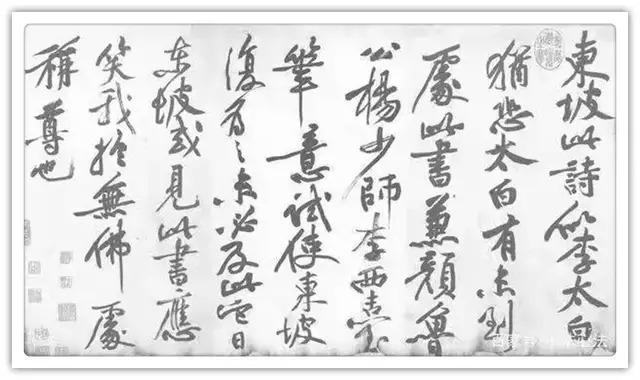 東坡此詩似李太白
猶恐太白有未到
處此書兼顏魯
公楊少師李西臺
筆意試使東坡
復為之未必及此它日
东坡或見此書應
笑我於無佛處
稱尊也